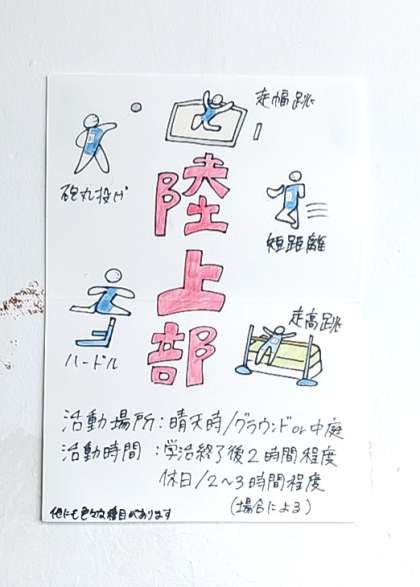 走幅跳
砲丸投げ
陸上部
短距離
走高跳
ハードル
活動場所：晴天時/グラウンドor中庭
活動時間：学活終了後2時間程度
休日/2〜3時間程度
(場合による)
他にも色々な種目があります